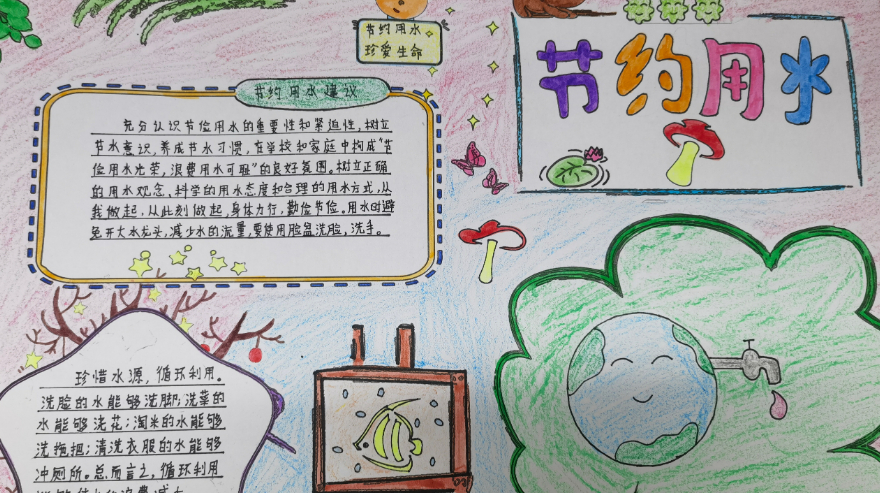 节约用水
珍爱生命
节约用水
节约用水建议
充分认识节俭用水的重要性和紧迫性,树立
节水意识,养成节水习惯,在学校和家庭中构成“节
俭用水光荣,浪费用水可耻”的良好氛围。树立正确
的用水观念、科学的用水态度和合理的用水方式,从
我做起,从此刻做起,身体力行,勤俭节俭。用水时避
免开大水龙头,减少水的流量,要使用脸盆洗脸,洗手。
珍惜水源,循环利用。
洗脸的水能够洗脚;洗菜的
水能够浇花;淘米的水能够
洗拖把;清洗衣服的水能够
冲厕所。总而言之,循环利用